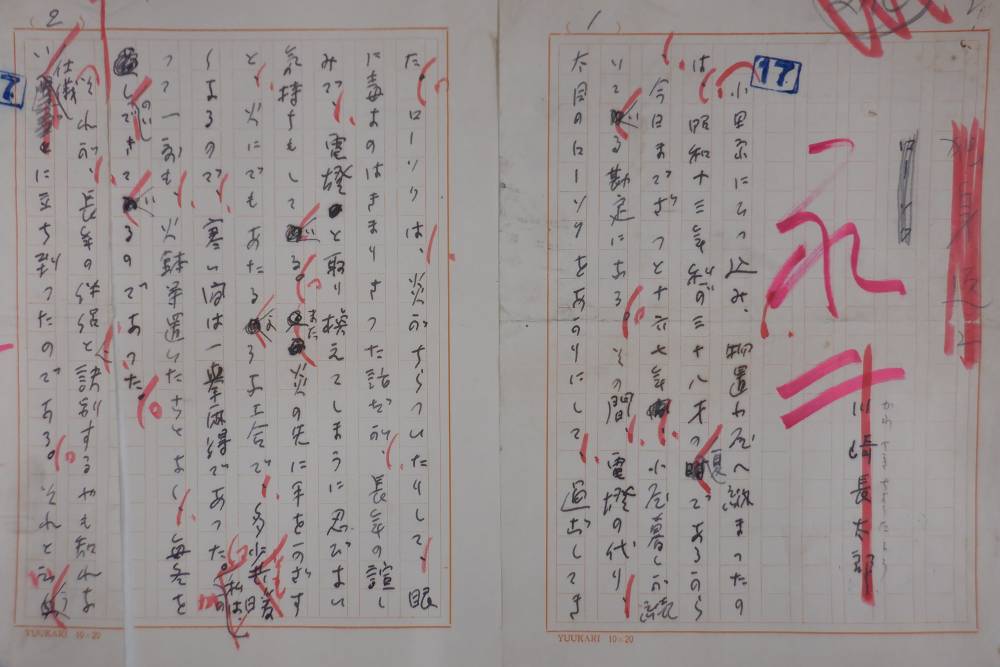 (1)
17
川崎長太郎
かわさきちょうたろう
小田原にひっ込み、物置小屋へ納まったの
は、昭和十三年私が三十八才の夏であるから
今日までざっと十六七年、小屋暮しが続
いている勘定になる。その間、電燈の代り、
太目のローソクをあかりにして、過ごしてき
YUUKARI 10×20
(2)
7
た。ローソクは、炎がちらついたりして、眼
に毒なのはきまりきった話だが、長年の誼し
みで、電燈と取り換えてしまうに忍びない
気持もしている。また炎の先に手をかざす
と、火にでもあたるような工合で、多少共暖
くなるので、寒い間は一挙両得であった。
私は、
も、火鉢等置いたことなく、毎冬を
しできているのであった。
それが、長年の伴侶と訣別するやも知れな
い仕儀に立ち到ったのである。それと云う
YUUKARI 10×20